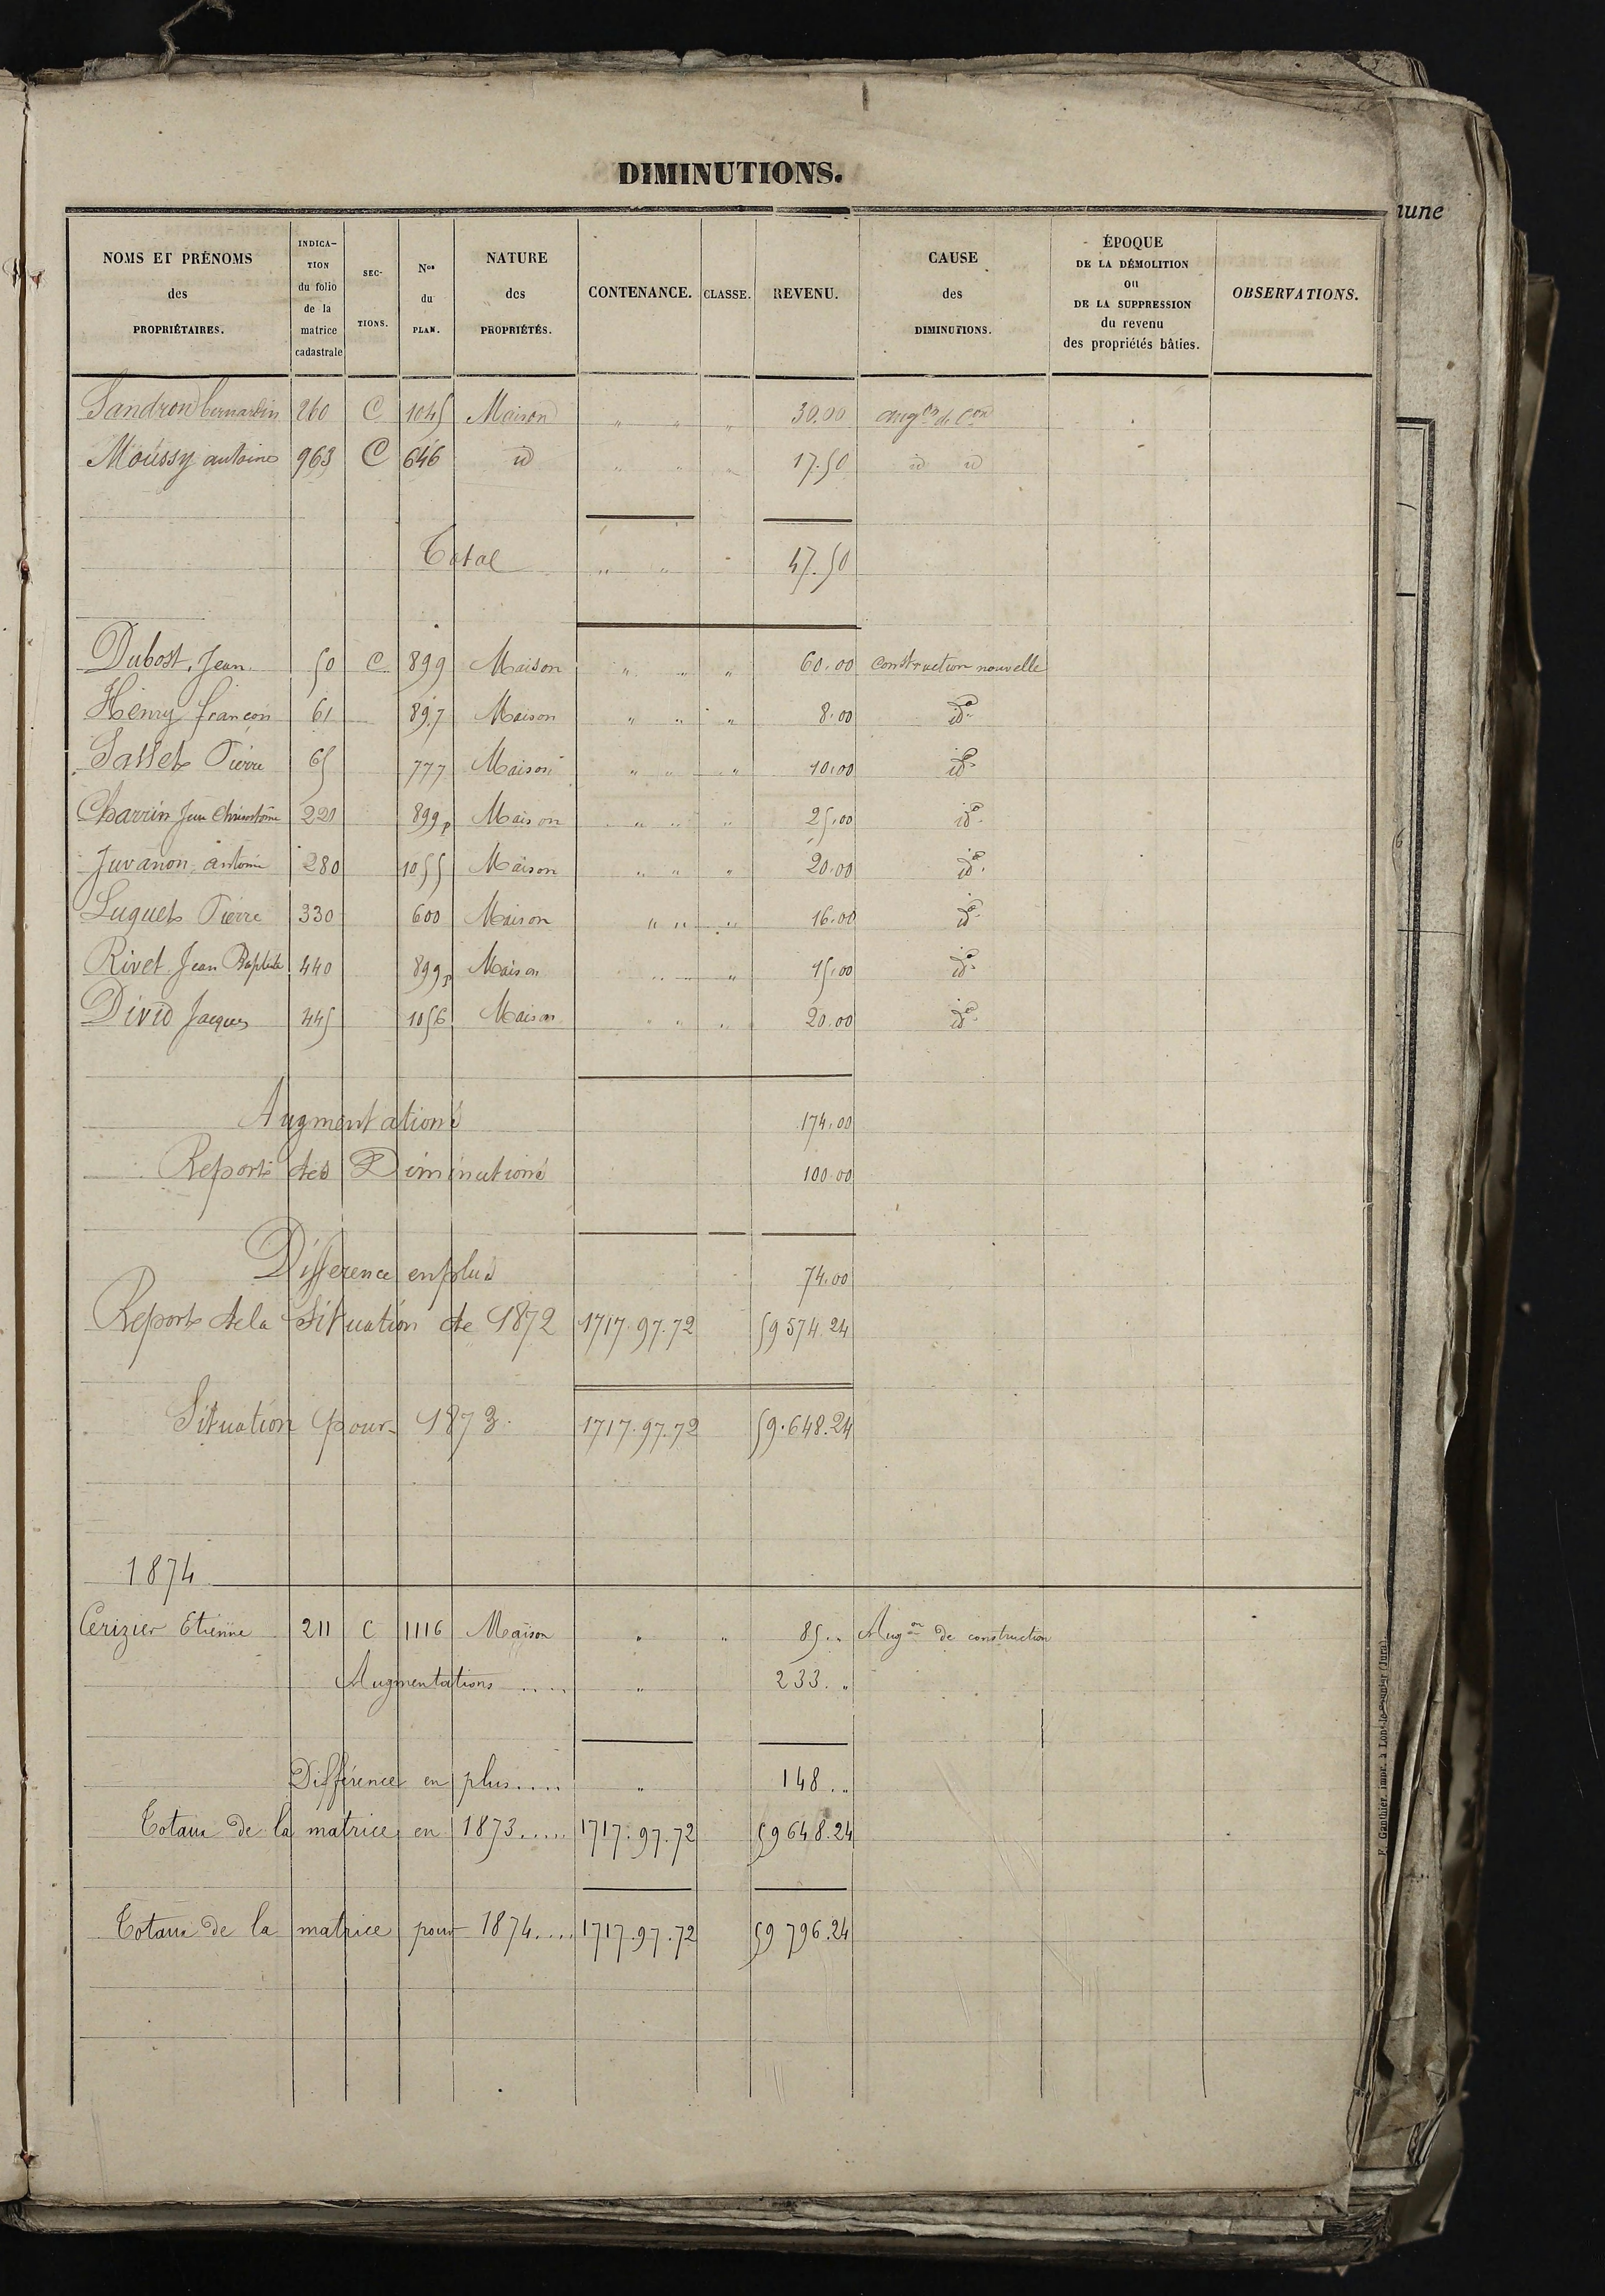 DIMINUTIONS.
NOMS ET PRÉNOMS des PROPRIÉTAIRES. INDICA-TION du folio de la matrice cadastrale SEC-TIONS. Nos du PLAN. NATURE des PROPRIÉTÉS. CONTENANCE. CLASSE. REVENU. CAUSE des DIMINUTIONS. ÉPOQUE DE LA DÉMOLITION OU DE LA SUPPRESSION du revenu des propriétés bâties. OBSERVATIONS.
Sandron bernardin 260 C 1045 Maison " " " 30.00 augon de Con
Moussy antoine 963 C 646 id " " " 17.50 id id
Total " " 47.50
Dubost, Jean 50 C 899 Maison " " " 60.00 Construction nouvelle
Henry françois 61 897 Maison " " " 8.00 id
65 777 Maison " " " 10.00 id
Charrin Jean 220 899p Maison " " " 25.00 id
Juvanon antoine 280 1055 Maison " " " 20.00 id
Luquet Pierre 330 600 Maison " " " 16.00 id
Rivet Jean Baptiste 440 899p Maison " " " 15.00 id
Jacques 445 1056 Maison " " " 20.00 id
Augmentations 174.00
Report des Diminutions 100.00
Difference en plus 74.00
Report de la Situation de 1872 1717.97.72 59574.24
Situation pour 1873. 1717.97.72 59.648.24
1874
Cerizier Etienne 211 C 1116 Maison " " 85.. Augon de construction
Augmentations ..... " 233. "
Différence en plus..... " 148..
Totaux de la matrice en 1873..... 1717.97.72 59648.24
Totaux de la matrice pour 1874.... 1717.97.72 59796.24
F. Gauthier, impr. à Lons-le-Saunier (Jura).
mune